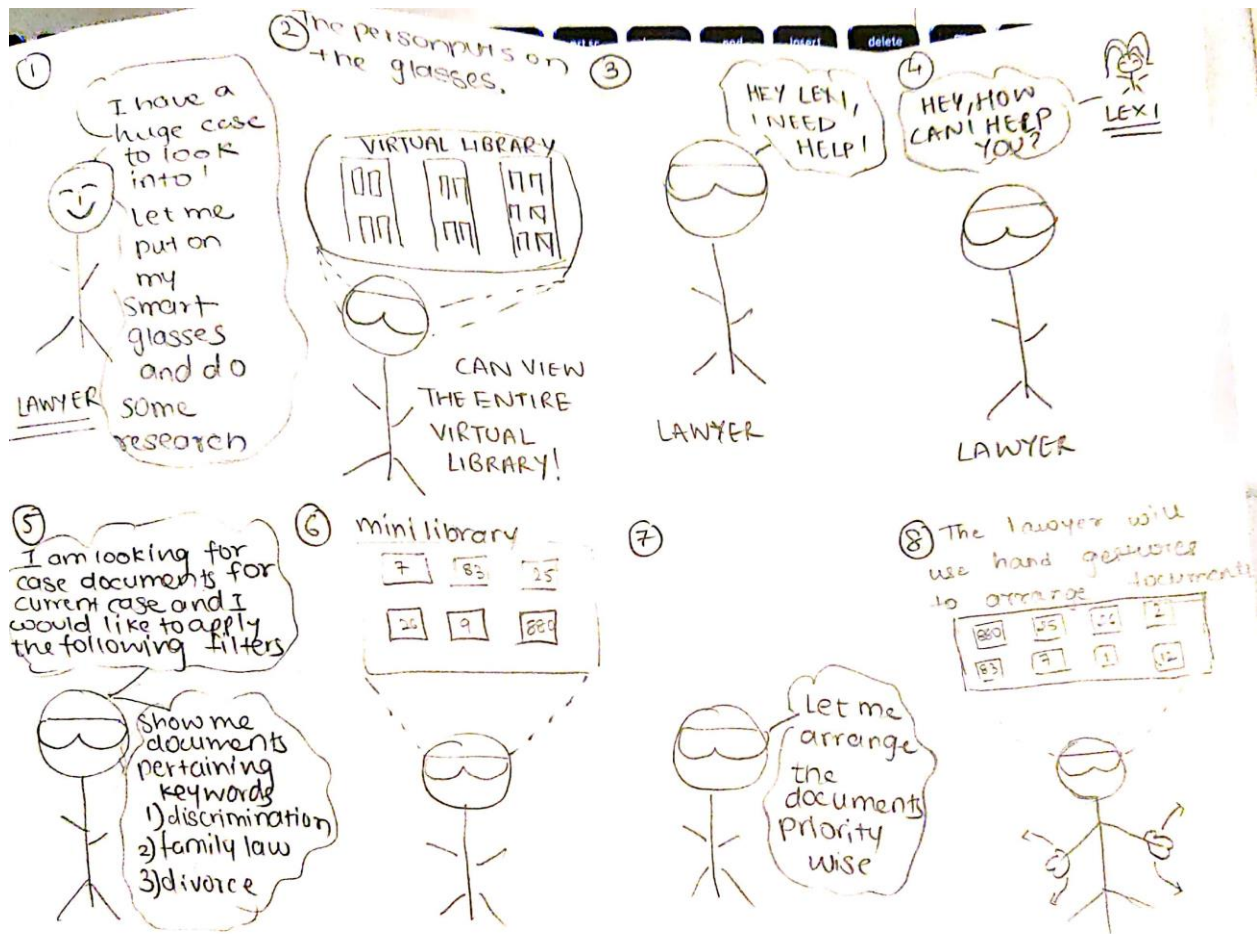 ①
I have a
huge case
to look
into!
Let me
put on
my
smart
glasses
and do
some
research
LAWYER
② The person puts on
the glasses.
VIRTUAL LIBRARY
CAN VIEW
THE ENTIRE
VIRTUAL
LIBRARY!
③
HEY LEXI,
I NEED
HELP!
LAWYER
④
HEY, HOW
CAN I HELP
YOU?
LEXI
LAWYER
⑤
I am looking for
case documents for
current case and I
would like to apply
the following filters
Show me
documents
pertaining
keywords
1) discrimination
2) family law
3) divorce
⑥ mini library
7 83 25
26 9 880
⑦
Let me
arrange
the
documents
priority
wise
⑧ The lawyer will
use hand gestures
to arrange documents
880 25 26 2
83 7 1 12
end insert delete